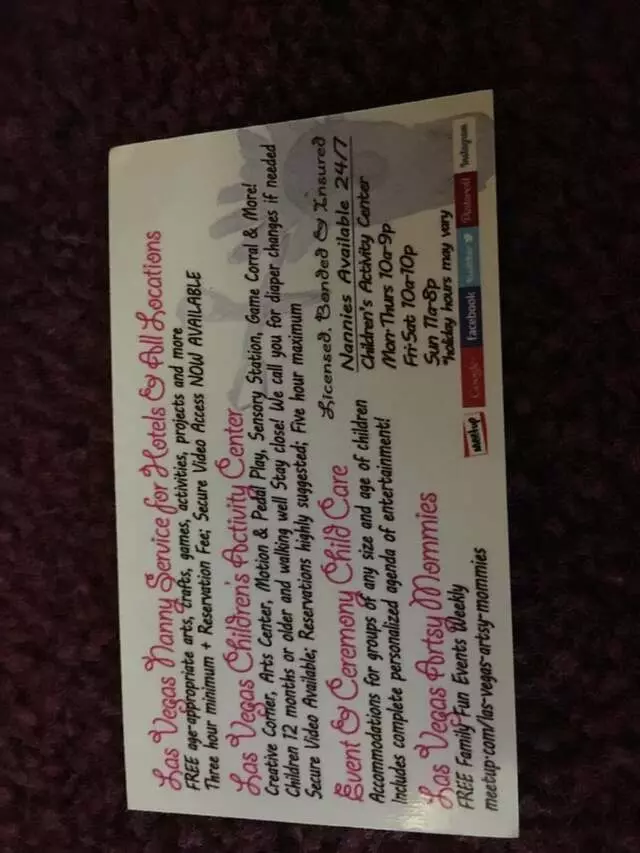 Las Vegas Nanny Service for Hotels & All Locations
FREE age-appropriate arts, crafts, games, activities, projects and more
Three hour minimum + Reservation Fee; Secure Video Access NOW AVAILABLE
Las Vegas Children's Activity Center
Creative Corner, Arts Center, Motion & Pedal Play, Sensory Station, Game Corral & More!
Children 12 months or older and walking well Stay close! We call you for diaper changes if needed
Secure Video Available; Reservations highly suggested; Five hour maximum
Event & Ceremony Child Care
Accommodations for groups of any size and age of children
Includes complete personalized agenda of entertainment!
Las Vegas Artsy Mommies
FREE Family Fun Events Weekly
meetup.com/las-vegas-artsy-mommies
Licensed, Bonded & Insured
Nannies Available 24/7
Children's Activity Center
Mon-Thurs 10a-9p
Fri-Sat 10a-10p
Sun 11a-8p
*holiday hours may vary
Meetup Google facebook twitter Pinterest Instagram